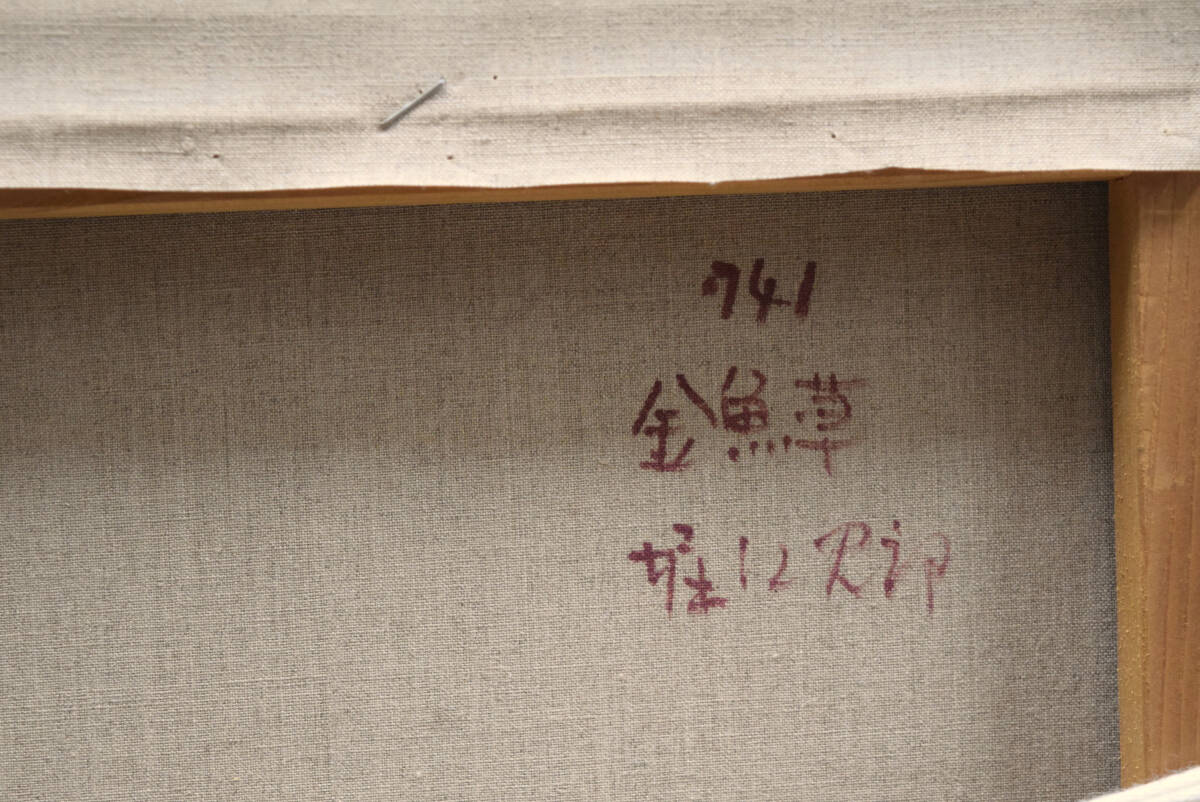 741
金魚草
堀 郎